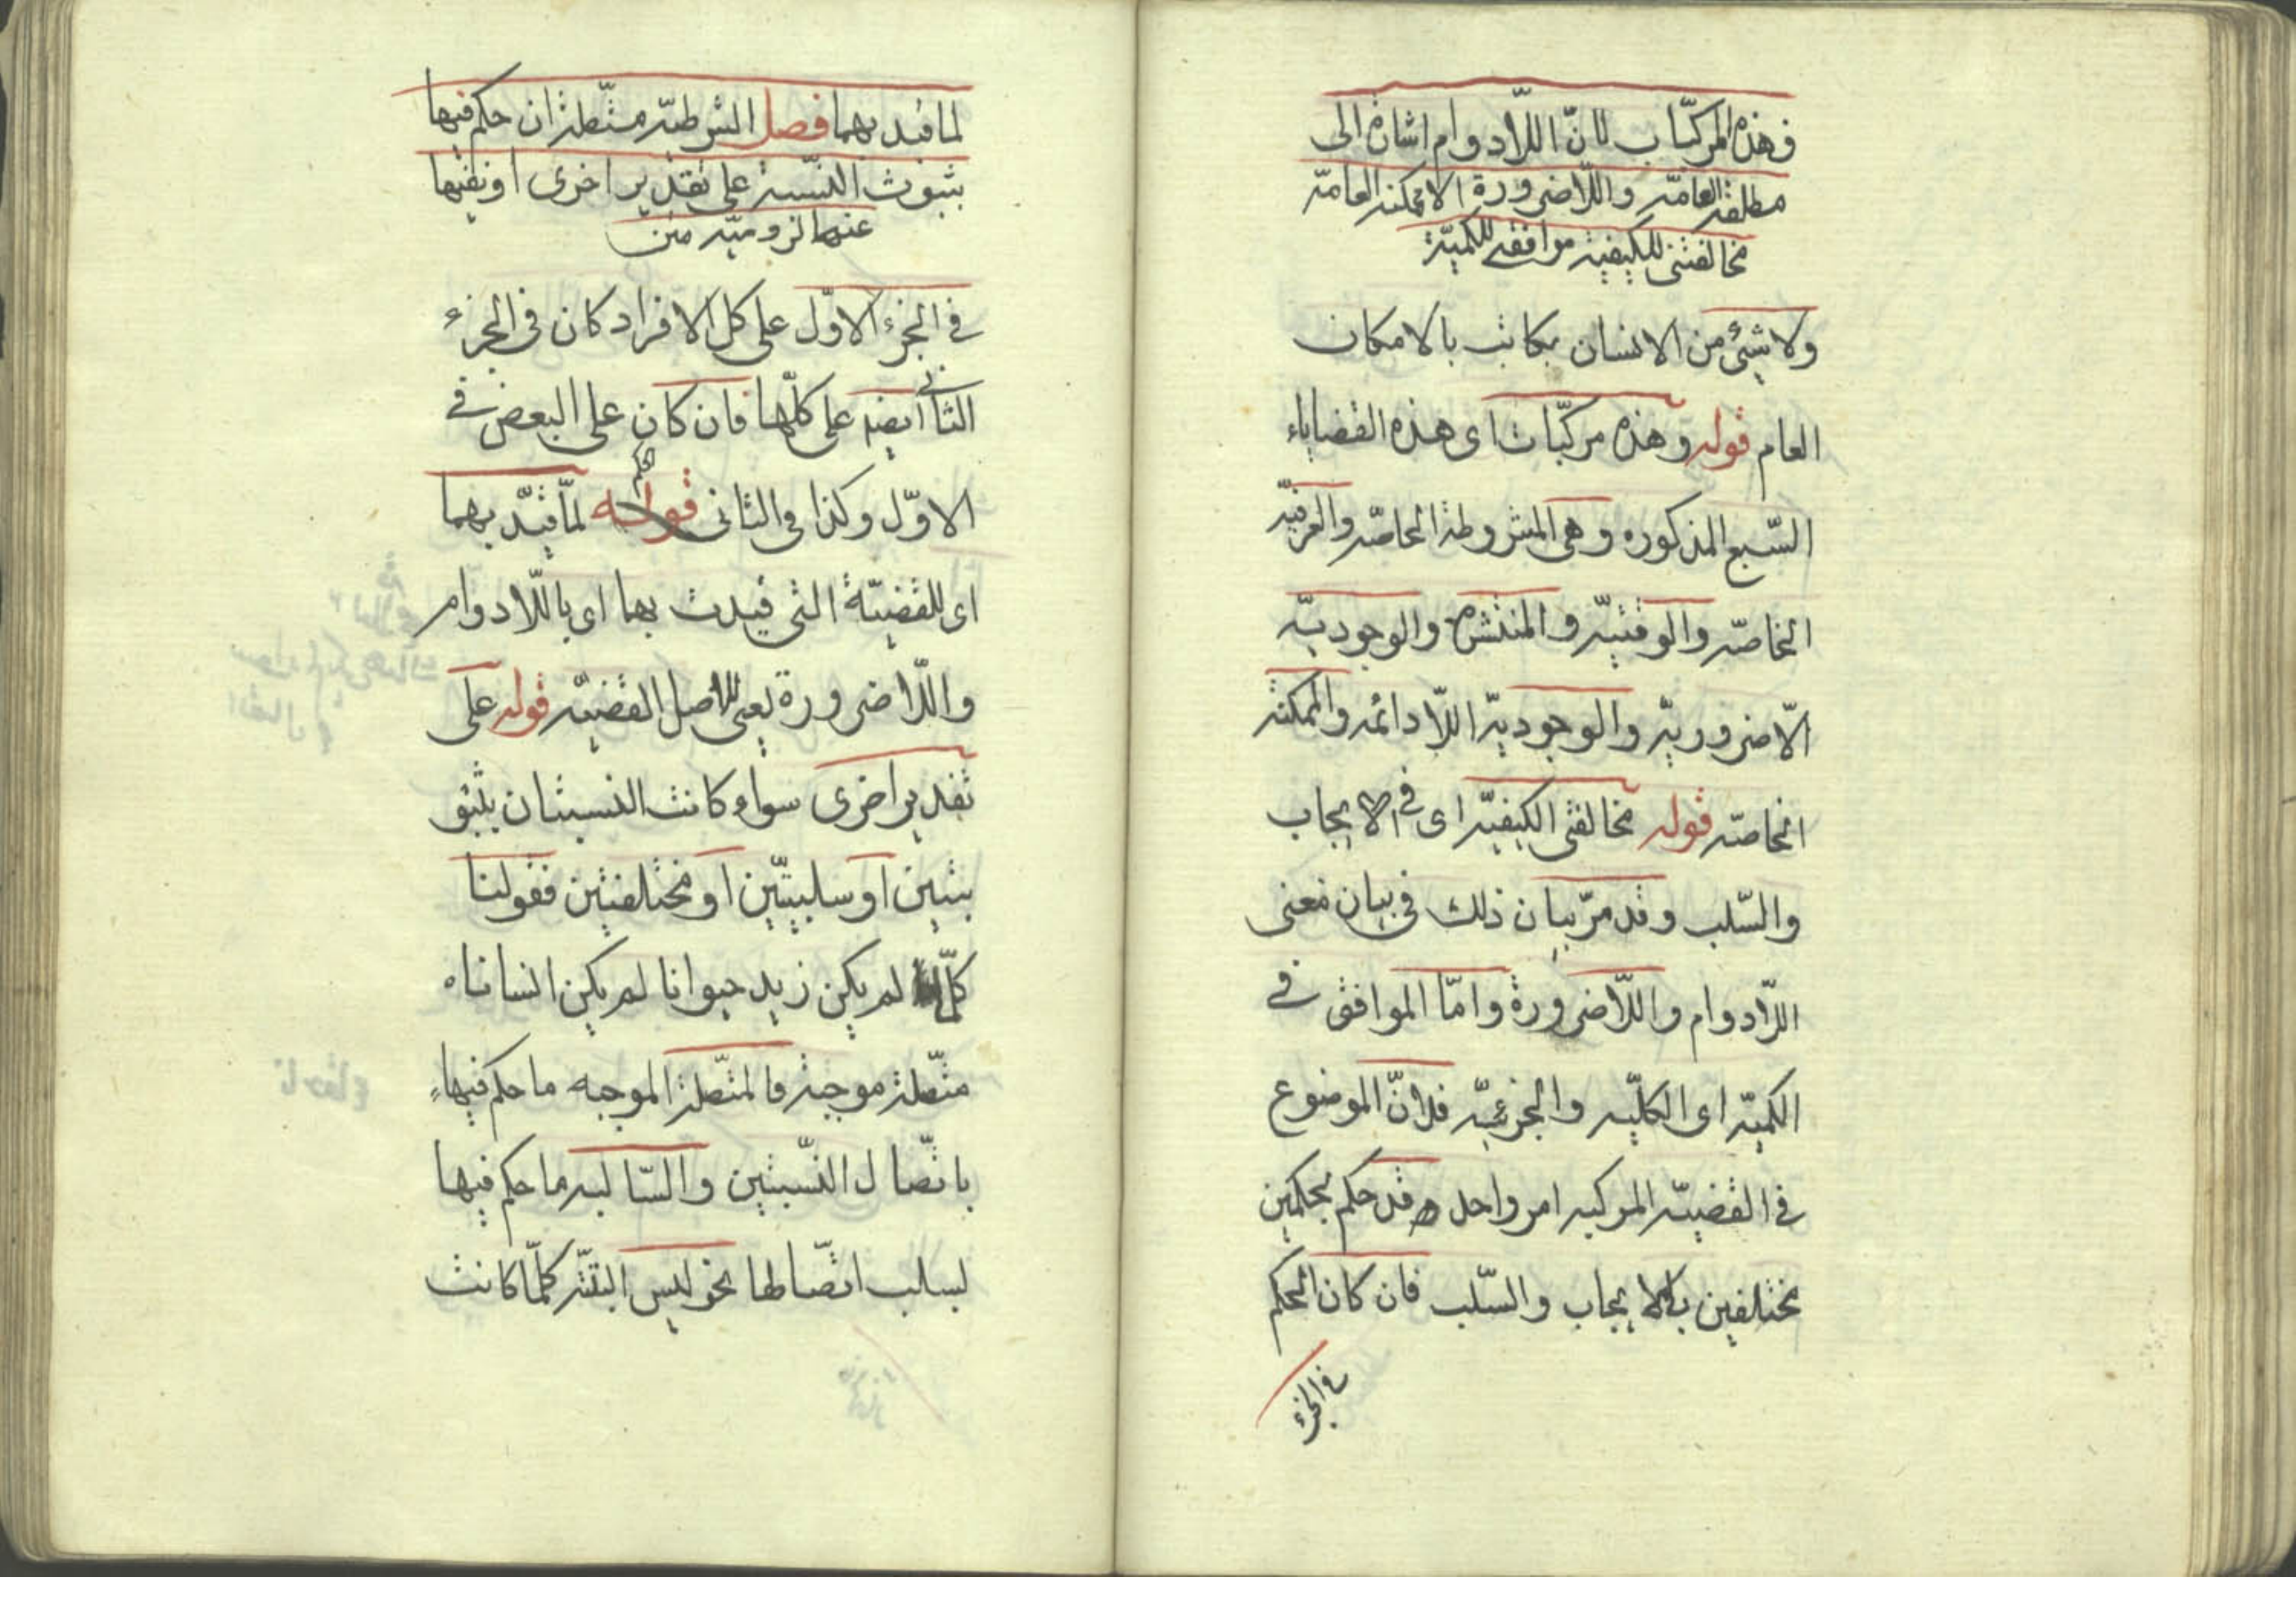 وهذه المركبات لان اللادوام اشارة الى
مطلقة العامة واللاضرورة الا ممكنة العامة
مخالفتى للكيفية موافقى للكمية
ولا شئ من الانسان بكاتب بالامكان
العام قوله وهذه مركبات اى هذه القضاياء
السّبع المذكوره وهى المشروطة الخاصّه والعرفيّه
الخاصّه والوقتيّه والمنتشره والوجوديّه
الّاضروريّه والوجوديّه اللّادائمه والممكنة
الخاصّه قوله مخالفتى الكيفيّه اى فى الايجاب
والسّلب وقد مرّ بيان ذلك فى بيان معنى
اللّادوام واللّاضرورة وامّا الموافق فى
الكميّه اى الكليّه والجزئيّه فلانّ الموضوع
فى القضيّه المركبه امر واحد قد حكم بحكمين
مختلفين بالايجاب والسّلب فان كان الحكم
فى الجزء
لما قيد بهما فصل الشرطيّه متّصلة ان حكم فيها
بثبوت النّسبة على تقدير اخرى او نفيها
عنها لزوميّه
فى الجزء الاوّل على كل الافراد كان فى الجزء
الثانى ايضا على كلّها فان كان على البعض فى
الاوّل وكذا فى الثانى قوله لمّا قيّد بهما
اى للقضيّة التى قيدت بهما اى باللّادوام
واللّاضرورة يعنى للاصل القضيّه قوله على
تقدير اخرى سواء كانت النسبتان يثبو
بتتين او سلبيتّين او مختلفتين فقولنا
كلّما لم يكن زيد حيوانا لم يكن انسانا
متّصلة موجبة فالمتّصلة الموجبه ما حكم فيها
باتّصال النّسبتين والسّالبه ما حكم فيها
لسلب اتّصالها نحو ليس البتّة كلّما كانت